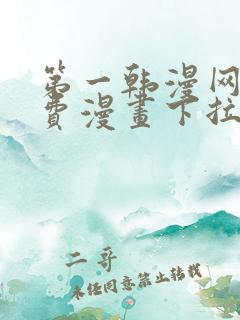 第一韩漫网
费漫画下拉
二哥
未经同意禁止转载